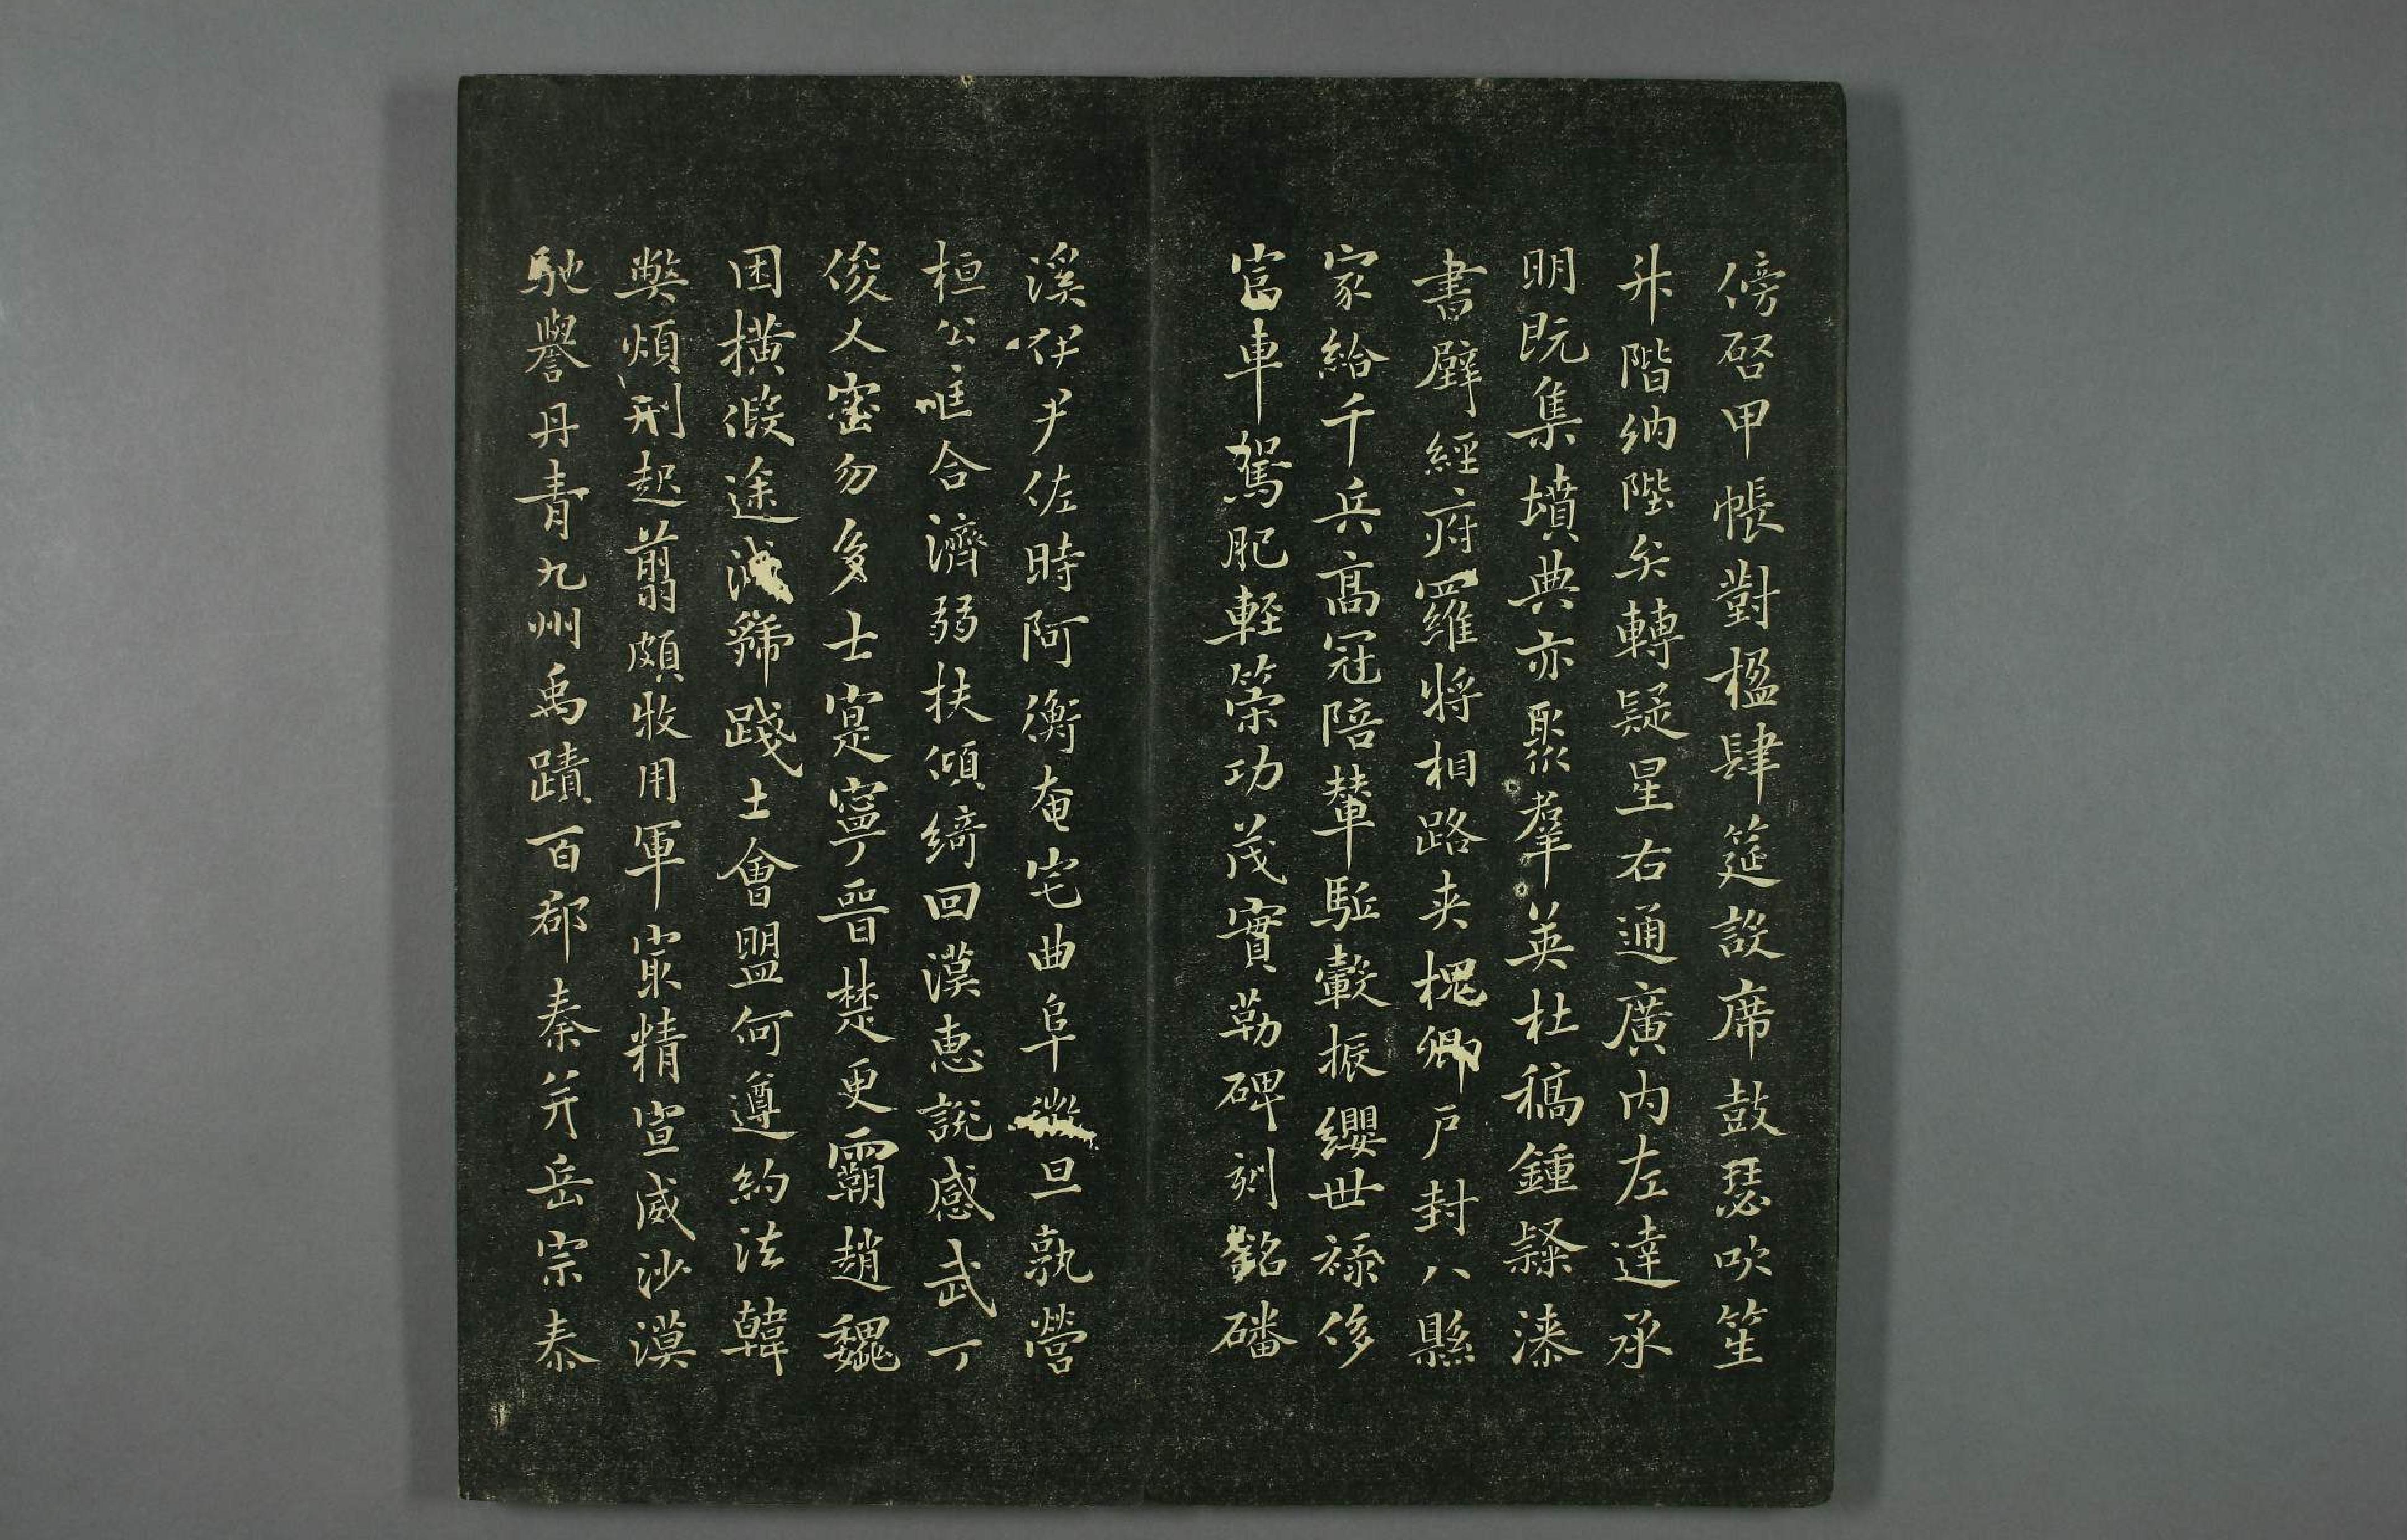 傍啓甲帳對楹肆筵設席鼓瑟吹笙
升階納陛弁轉疑星右通廣內左達承
明既集墳典亦聚羣英杜稿鍾隸漆
書壁經府羅將相路夾槐卿戶封八縣
家給千兵高冠陪輦駈轂振纓世祿侈
富車駕肥輕策功茂實勒碑刻銘磻
溪伊尹佐時阿衡奄宅曲阜微旦孰營
桓公匡合濟弱扶傾綺回漢惠說感武丁
俊乂密勿多士寔寧晉楚更霸趙魏
困橫假途滅虢踐土會盟何遵約法韓
弊煩刑起翦頗牧用軍最精宣威沙漠
馳譽丹青九州禹蹟百郡秦并岳宗泰